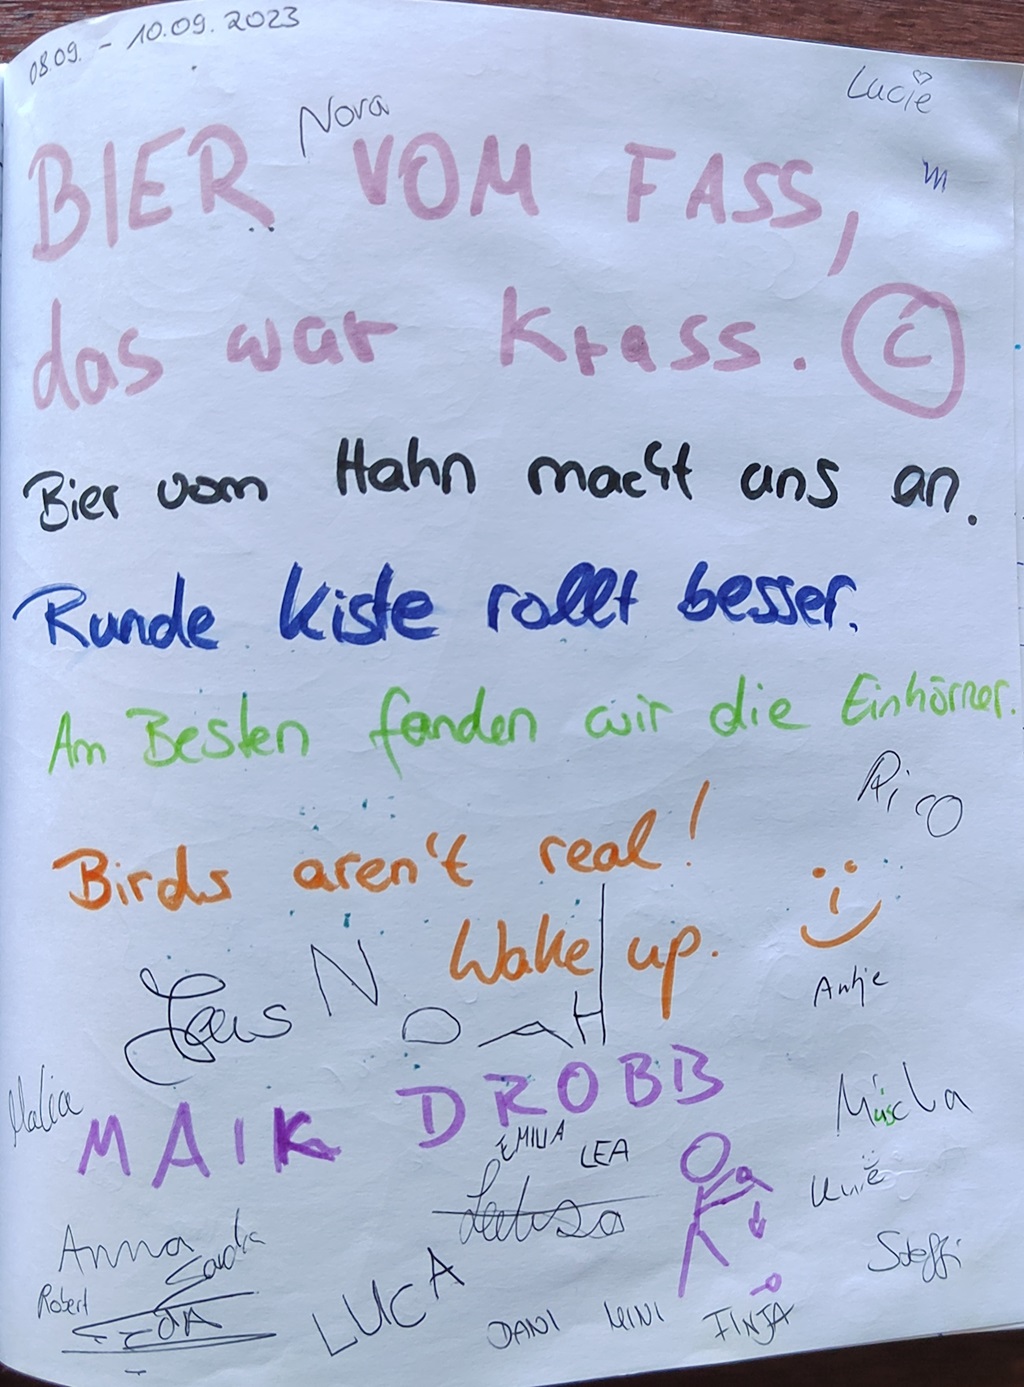 08.09. - 10.09.2023
Lucie
Nova
BIER VOM FASS,
das war Krass. ©
Bier vom Hahn macht uns an.
Runde Kiste rollt besser.
Am Besten fanden wir die Einhörner.
Rico
Birds aren't real!
Wake up.
Antje
NOAH
Malia
MAIK DROBB
EMILIA
LEA
Anna
Robert
Steffi
LUCA
DANI
MINI
FINJA